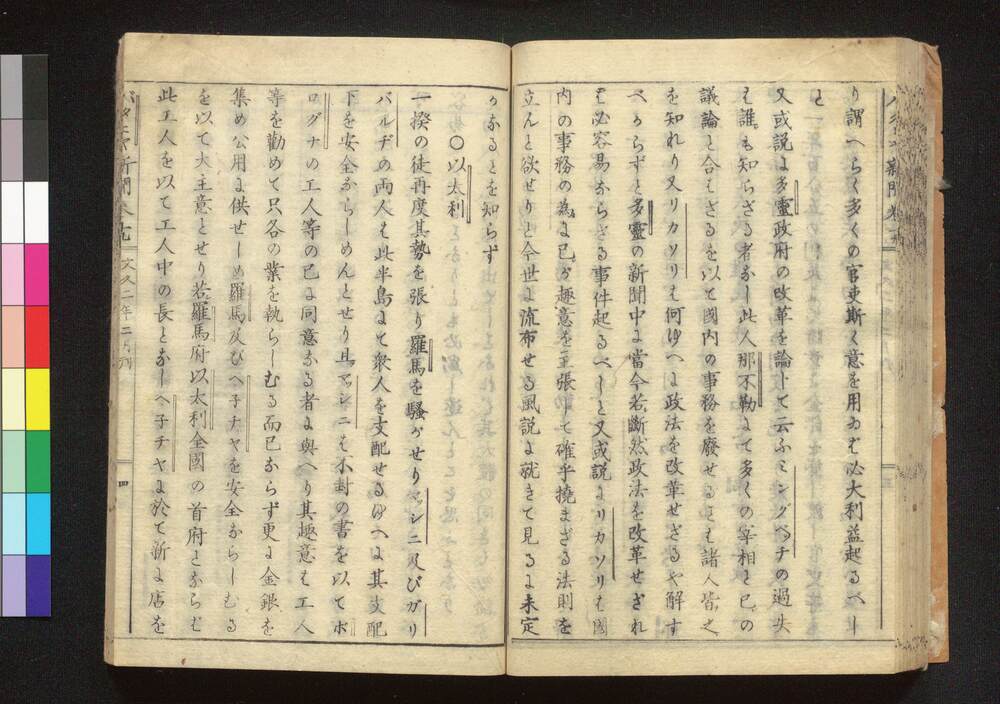 り謂へらく多くの官吏斯く意を用ゐば必大利益起るべし
と
又或説よ多靈政府の改革を論じて云ふミングベチの過失
は誰も知らざる者なし此人那不勒にて多くの宰相と己の
議論と合はざるを以て國内の事務を廢せることも諸人皆之
を知れり又リカソリは何ゆへに政法を改革せざるや解す
べからずと多靈の新聞中よ當今若斷然政法を改革せざれ
は必容易ならざる事件起るべしと又或説よリカソリは國
内の事務の為よ己が趣意を主張して確乎撓まざる法則を
立んと欲せりと今世よ流布せる風説よ就きて見るよ未定
かなるとを知らず
○以太利
一揆の徒再度其勢を張り羅馬を騒かせりマシニ及びガリ
バルヂの両人は此半島にて衆人を支配せるゆへよ其支配
下を安全ならしめんとせり且マシニは不封の書を以てボ
ログナの工人等の己よ同意なる者よ與へり其趣意は工人
等を勸めて只各の業を執らしむる而已ならず更よ金銀を
集め公用よ供せしめ羅馬及びヘ子チヤを安全ならしむる
を以て大主意とせり若羅馬府以太利全國の首府とならば
此工人を以て工人中の長となしヘ子チヤよ於て新よ店を
バタヒヤ新聞 文久二年二月刊